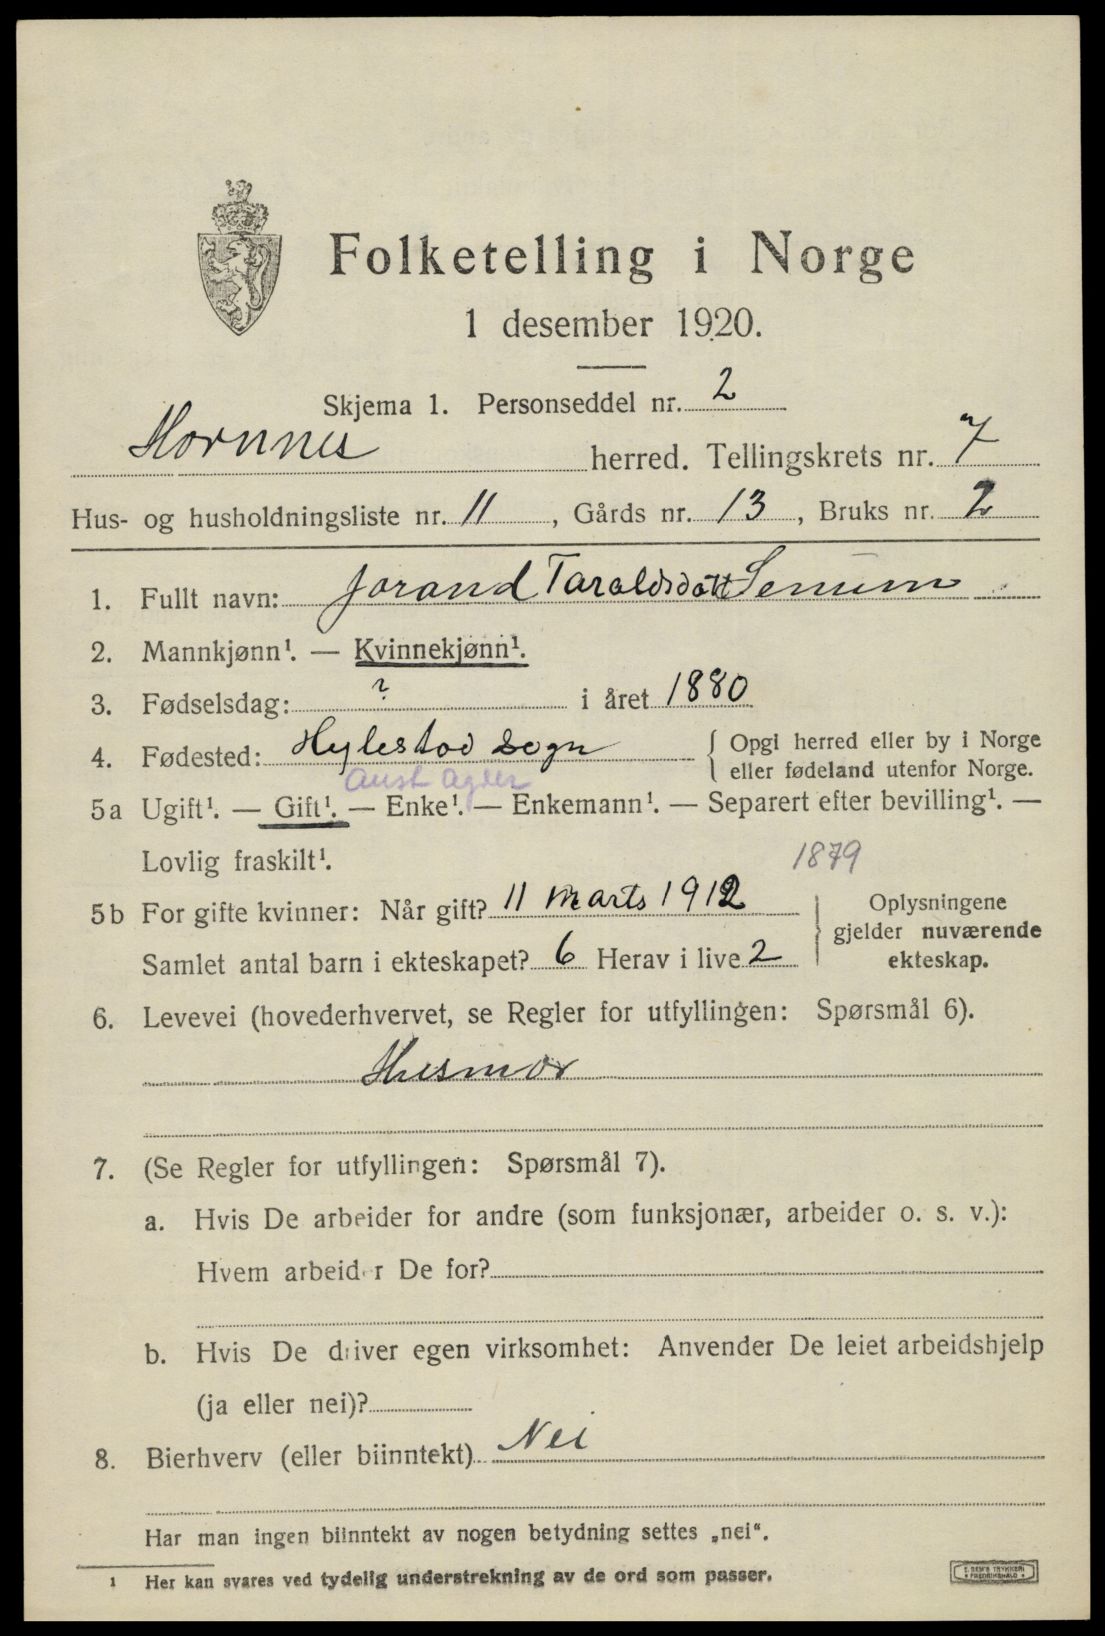 Folketelling i Norge
1 desember 1920.
Skjema 1. Personseddel nr. 2
Hornnes herred. Tellingskrets nr. 7
Hus- og husholdningsliste nr. 11, Gårds nr. 13, Bruks nr. 2
1. Fullt navn: Jorand Taraldsdatt Senum
2. Mannkjønn¹. — Kvinnekjønn¹.
3. Fødselsdag: ? i året 1880
4. Fødested: Hylestad sogn { Opgi herred eller by i Norge
eller fødeland utenfor Norge.
Aust Agder
5a Ugift¹. — Gift¹. — Enke¹. — Enkemann¹. — Separert efter bevilling¹. —
Lovlig fraskilt¹.
1879
5b For gifte kvinner: Når gift? 11 Marts 1912
Samlet antal barn i ekteskapet? 6 Herav i live 2
} Oplysningene
gjelder nuværende
ekteskap.
6. Levevei (hovederhvervet, se Regler for utfyllingen: Spørsmål 6).
Husmor
7. (Se Regler for utfyllingen: Spørsmål 7).
a. Hvis De arbeider for andre (som funksjonær, arbeider o. s. v.):
Hvem arbeider De for?
b. Hvis De driver egen virksomhet: Anvender De leiet arbeidshjelp
(ja eller nei)?
8. Bierhverv (eller biinntekt) Nei
Har man ingen biinntekt av nogen betydning settes „nei“.
¹ Her kan svares ved tydelig understrekning av de ord som passer.